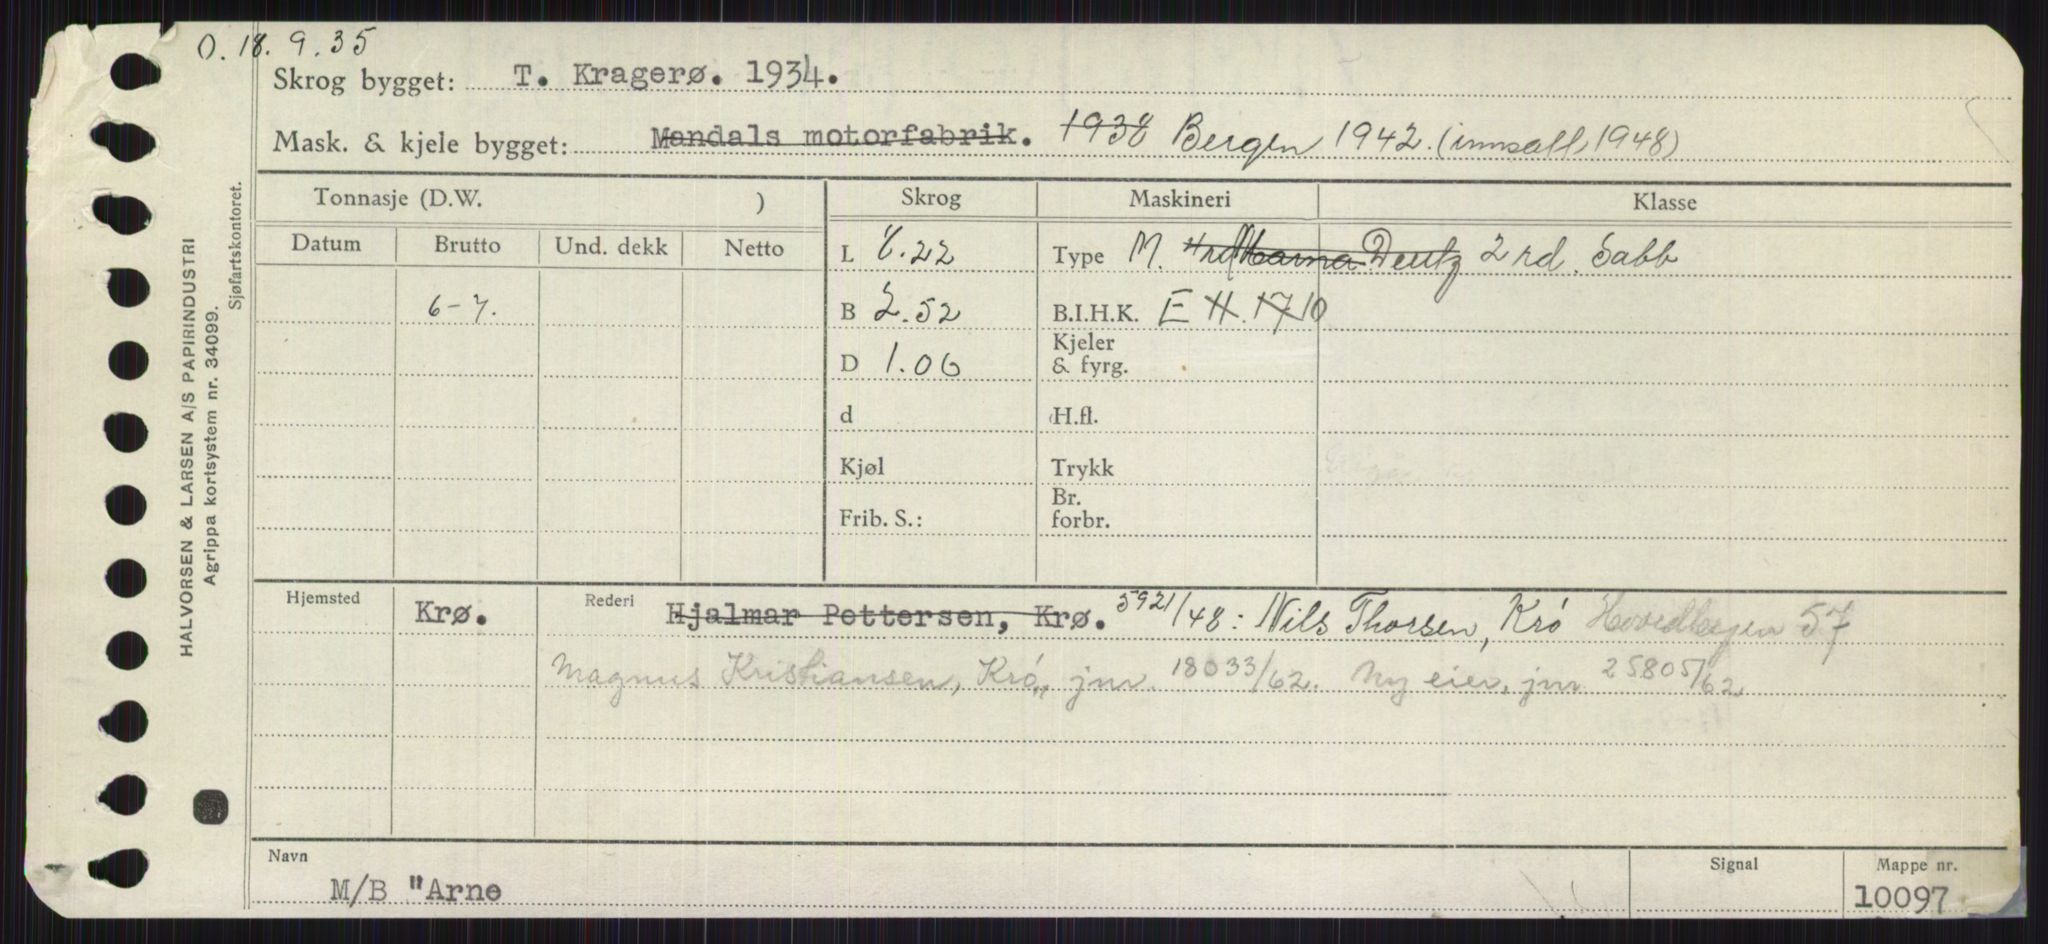 O. 18. 9. 35
Skrog bygget: T. Kragerø. 1934.
Mask. & kjele bygget: Mandals motorfabrik. 1938 Bergen 1942. (innsatt 1948)
Tonnasje (D.W. ) Skrog Maskineri Klasse
Datum Brutto Und. dekk Netto L 8.22 Type M. Deutz 2 rd. Sabb
6-7. B 2.52 B.I.H.K. E H. 17 10
D 1.06 Kjeler
& fyrg.
d H.fl.
Kjøl Trykk
Frib. S.: Br.
forbr.
Hjemsted Krø. Rederi Hjalmar Pettersen, Krø. 5921/48: Nils Thorsen, Krø 57
Magnus Kristiansen, Krø, jnr. 18033/62. Ny eier, jnr. 25805/62
Navn Signal Mappe nr.
M/B "Arne 10097
HALVORSEN & LARSEN A/S PAPIRINDUSTRI
Agrippa kortsystem nr. 34099.
Sjøfartskontoret.